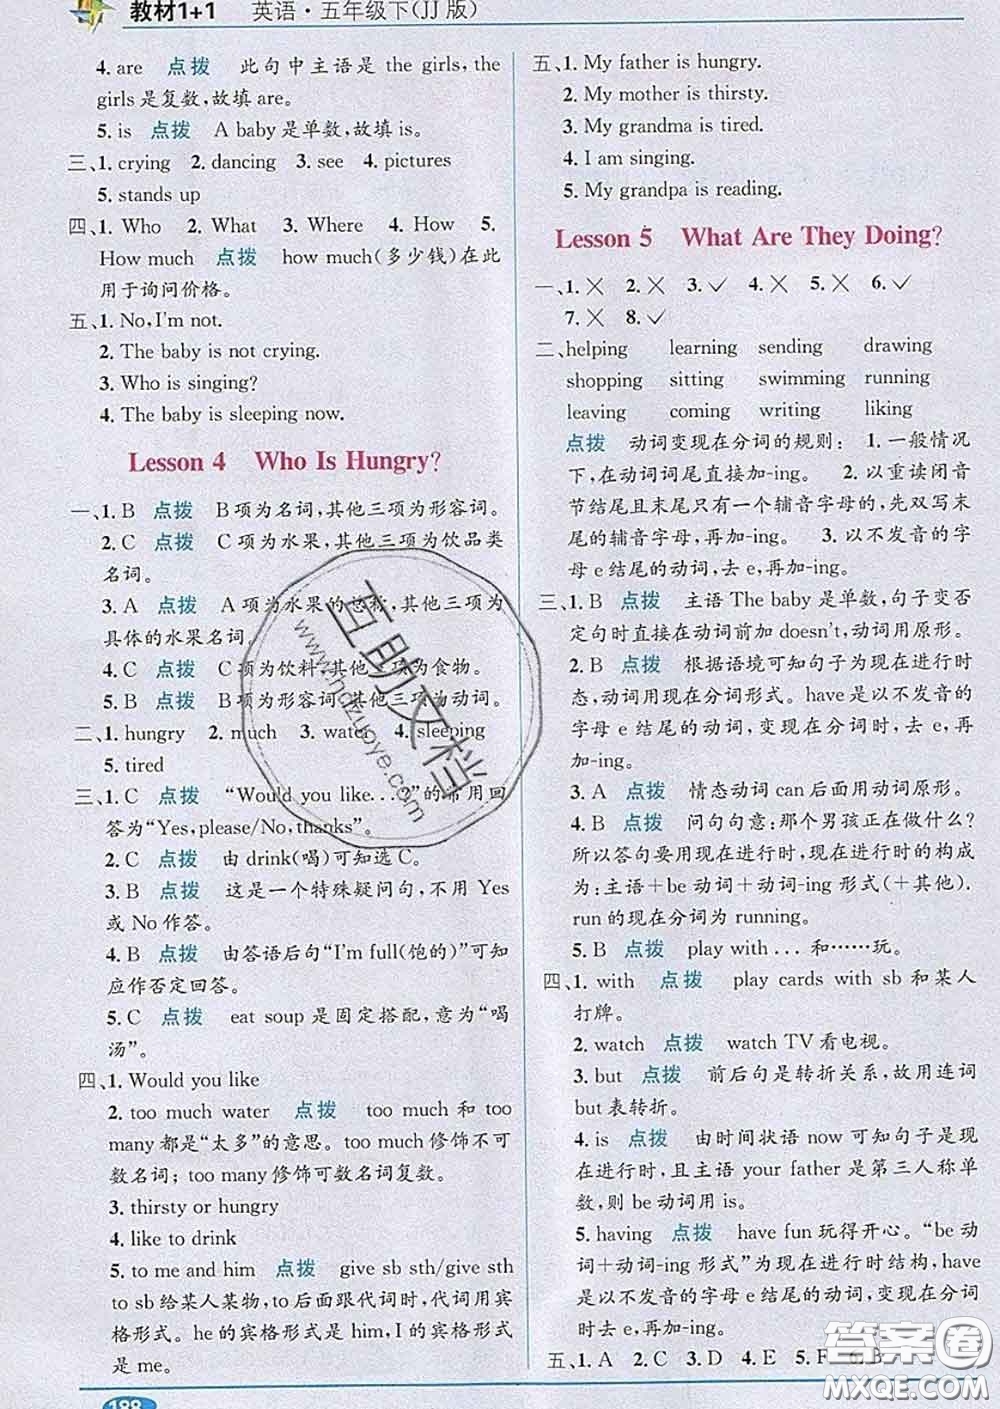 教材1+1 英语·五年级下(JJ版)
4. are 点拨 此句中主语是 the girls, the
girls 是复数,故填 are。
5. is 点拨 A baby 是单数,故填 is。
三、1. crying 2. dancing 3. see 4. pictures
5. stands up
四、1. Who 2. What 3. Where 4. How 5.
How much 点拨 how much(多少钱)在此
用于询问价格。
五、1. No, I'm not.
2. The baby is not crying.
3. Who is singing?
4. The baby is sleeping now.
Lesson 4 Who Is Hungry?
一、1. B 点拨 B项为名词,其他三项为形容词。
2. C 点拨 C项为水果,其他三项为饮品类
名词。
3. A 点拨 A项为水果的总称,其他三项为
具体的水果名词。
4. C 点拨 C项为饮料,其他三项为食物。
5. B 点拨 B项为形容词,其他三项为动词。
二、1. hungry 2. much 3. water 4. sleeping
5. tired
三、1. C 点拨 “Would you like...?”的常用回
答为“Yes, please/No, thanks”。
2. C 点拨 由 drink(喝)可知选 C。
3. B 点拨 这是一个特殊疑问句,不用 Yes
或 No 作答。
4. B 点拨 由答语后句“I'm full(饱的)”可知
应作否定回答。
5. C 点拨 eat soup 是固定搭配,意为“喝
汤”。
四、1. Would you like
2. too much water 点拨 too much 和 too
many 都是“太多”的意思。too much 修饰不可
数名词; too many 修饰可数名词复数。
3. thirsty or hungry
4. like to drink
5. to me and him 点拨 give sb sth/give sth
to sb 给某人某物, to 后面跟代词时,代词用宾
格形式。he 的宾格形式是 him, I 的宾格形式
是 me。
188
五、1. My father is hungry.
2. My mother is thirsty.
3. My grandma is tired.
4. I am singing.
5. My grandpa is reading.
Lesson 5 What Are They Doing?
一、1. ✕ 2. ✕ 3. ✓ 4. ✕ 5. ✕ 6. ✓
7. ✕ 8. ✓
二、helping learning sending drawing
shopping sitting swimming running
leaving coming writing liking
点拨 动词变现在分词的规则: 1. 一般情况
下,在动词词尾直接加-ing。 2. 以重读闭音
节结尾且末尾只有一个辅音字母的,先双写末
尾的辅音字母,再加-ing。 3. 以不发音的字
母 e 结尾的动词,去 e,再加-ing。
三、1. B 点拨 主语 The baby 是单数,句子变否
定句时直接在动词前加 doesn't,动词用原形。
2. B 点拨 根据语境可知句子为现在进行时
态,动词用现在分词形式。have 是以不发音的
字母 e 结尾的动词,变现在分词时,去 e,再加
-ing。
3. A 点拨 情态动词 can 后面用动词原形。
4. B 点拨 问句句意:那个男孩正在做什么?
所以答句要用现在进行时,现在进行时的构成
为:主语+be 动词+动词-ing 形式(+其他).
run 的现在分词为 running.
5. B 点拨 play with ... 和……玩。
四、1. with 点拨 play cards with sb 和某人
打牌。
2. watch 点拨 watch TV 看电视。
3. but 点拨 前后句是转折关系,故用连词
but 表转折。
4. is 点拨 由时间状语 now 可知句子是现
在进行时,且主语 your father 是第三人称单
数,则 be 动词用 is。
5. having 点拨 have fun 玩得开心。“be 动
词+动词-ing 形式”为现在进行时结构,have
是以不发音的字母 e 结尾的动词,变现在分词
时去 e,再加-ing。
五、1. A 2. C 3. D 4. E 5. F 6. B
互助文档
www.hdzuoye.com
答案圈
MXQE.COM